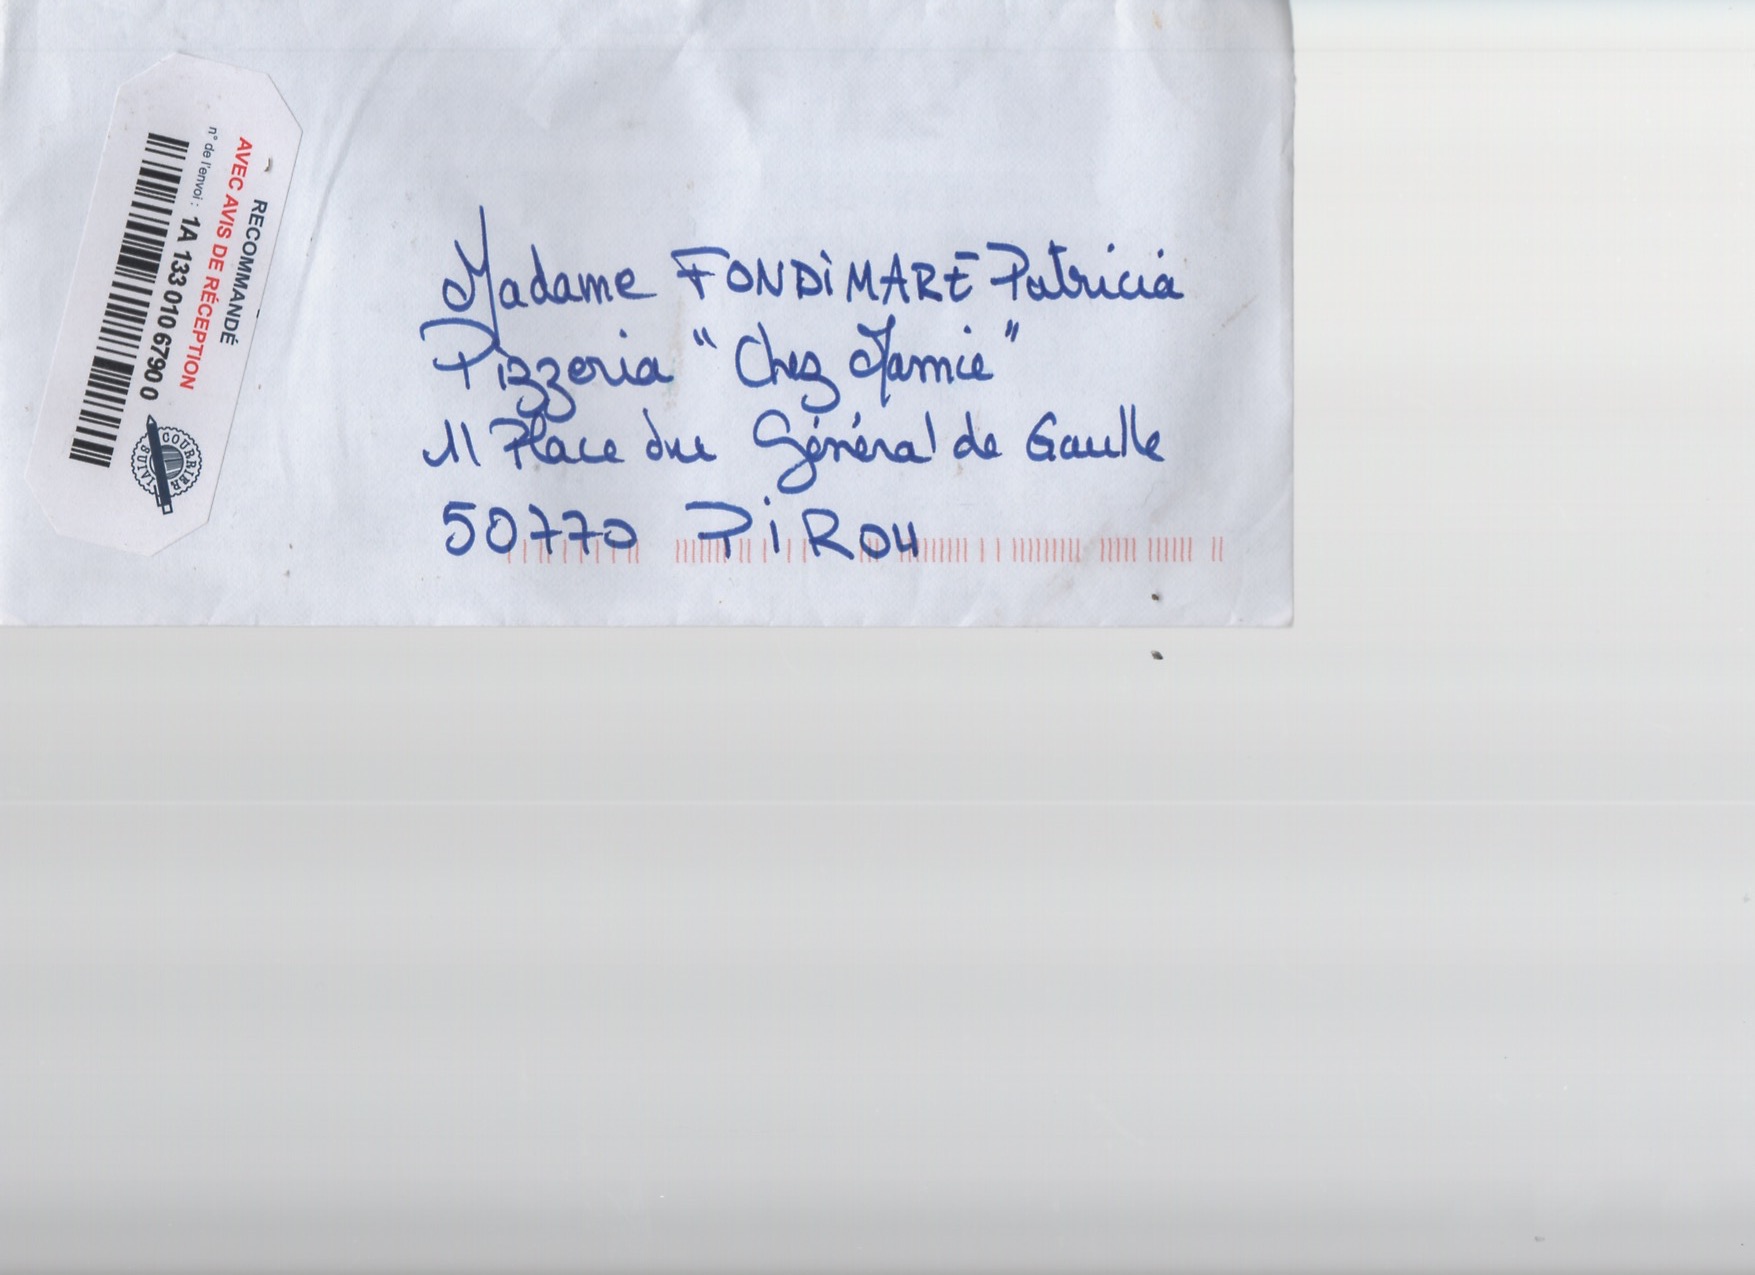 RECOMMANDÉ
AVEC AVIS DE RÉCEPTION
n° de l'envoi : 1A 133 010 6790 0
COURRIER SUIVI
Madame FONDIMARE Patricia
Pizzeria "Chez Mamie"
11 Place du Général de Gaulle
50770 PIROU